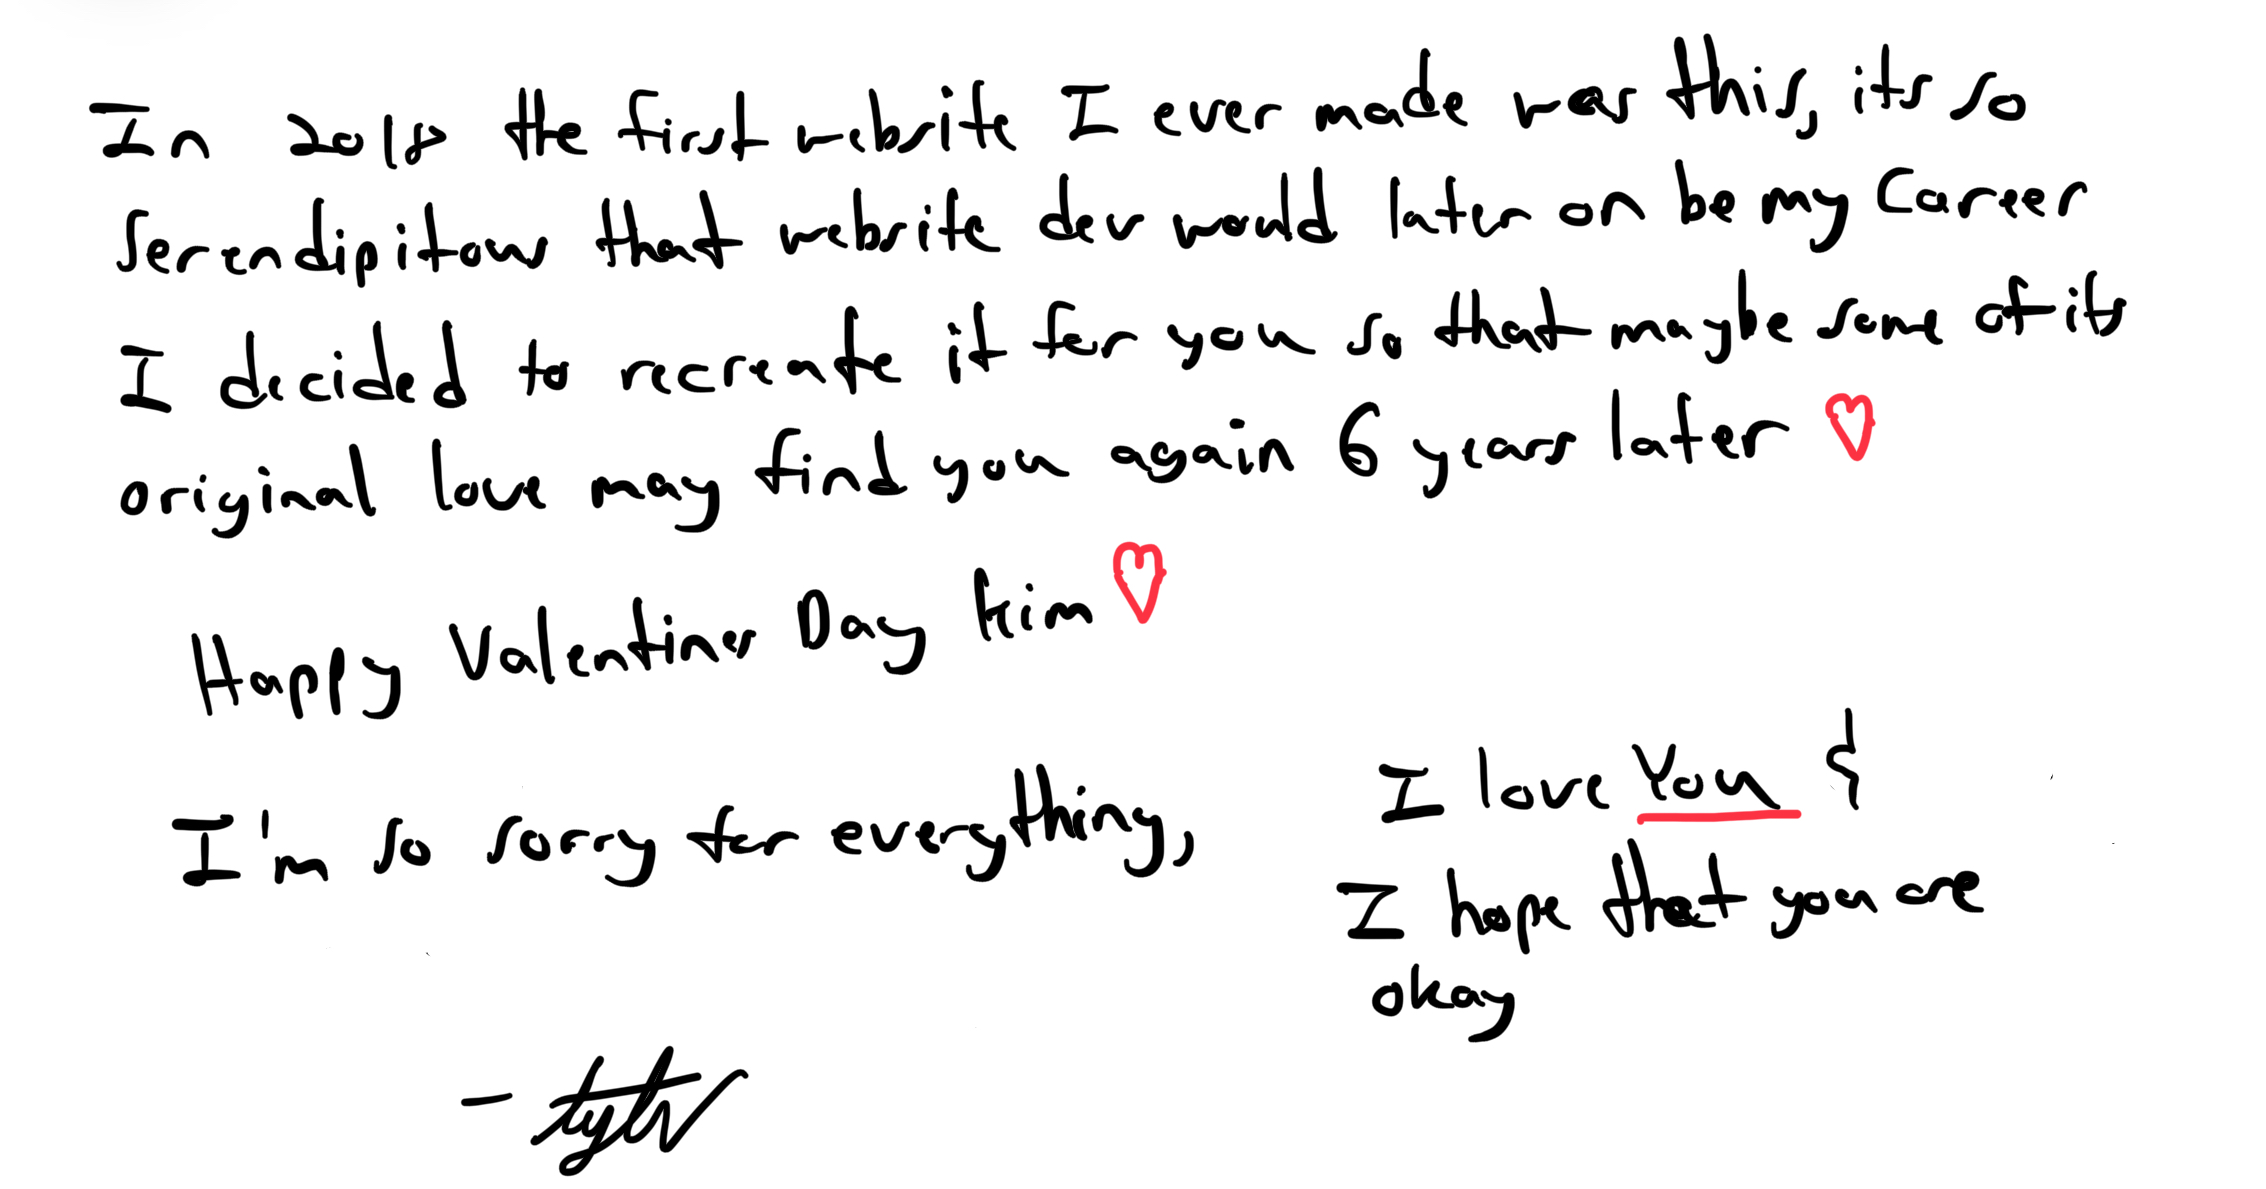 In 2018 the first website I ever made was this, its so
serendipitous that website dev would later on be my Career
I decided to recreate it for you so that maybe some of its
original love may find you again 6 years later ♡
Happy Valentines Day Kim ♡
I'm so sorry for everything,
I love You &
I hope that you are
okay
-